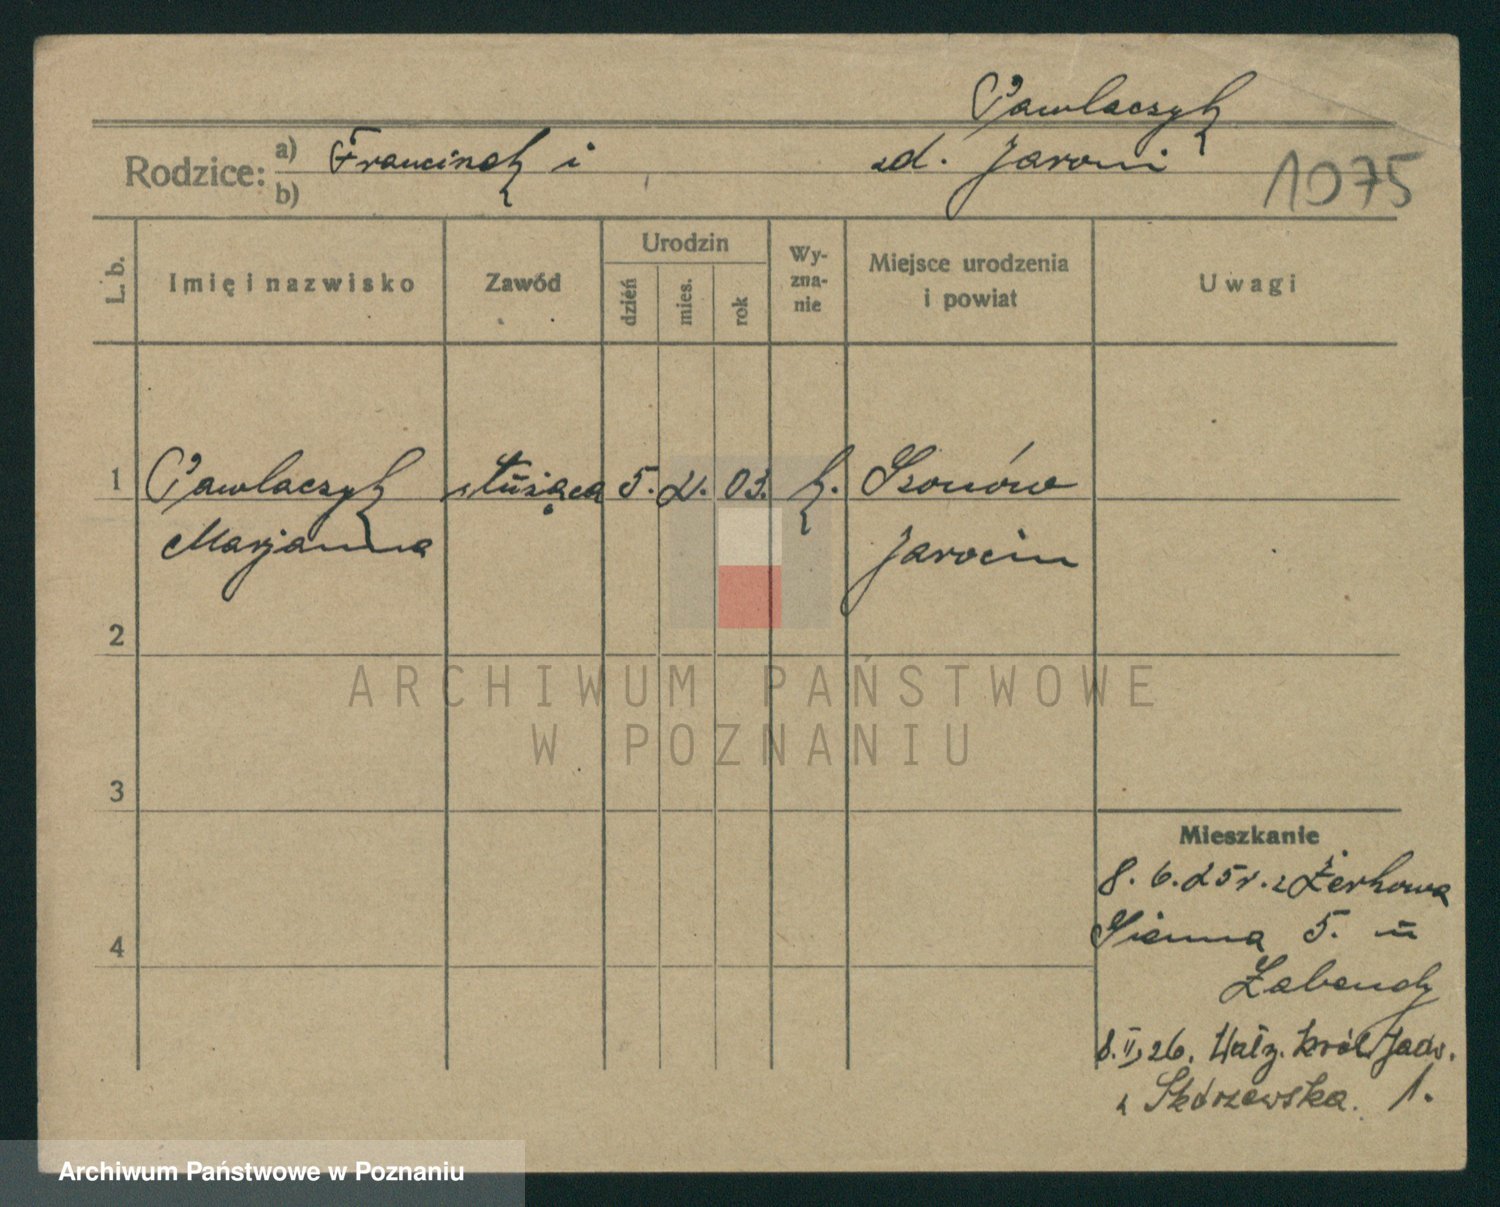 Pawlaczyk
Rodzice: a) Franciszek i zd. Jaroni 1075
b)
L. b. Imię i nazwisko Zawód Urodzin dzień mies. rok Wy-zna-nie Miejsce urodzenia i powiat Uwagi
1 Pawlaczyk służąca 5. 2. 03. k.
Marjanna Jarocin
2
ARCHIWUM PAŃSTWOWE
W POZNANIU
3
Mieszkanie
8. 6. 25 r. z Żerkowa
4 Sienna 5. u
8. II, 26. Wały Król. Jadw.
u Skórzewska. 1.
Archiwum Państwowe w Poznaniu